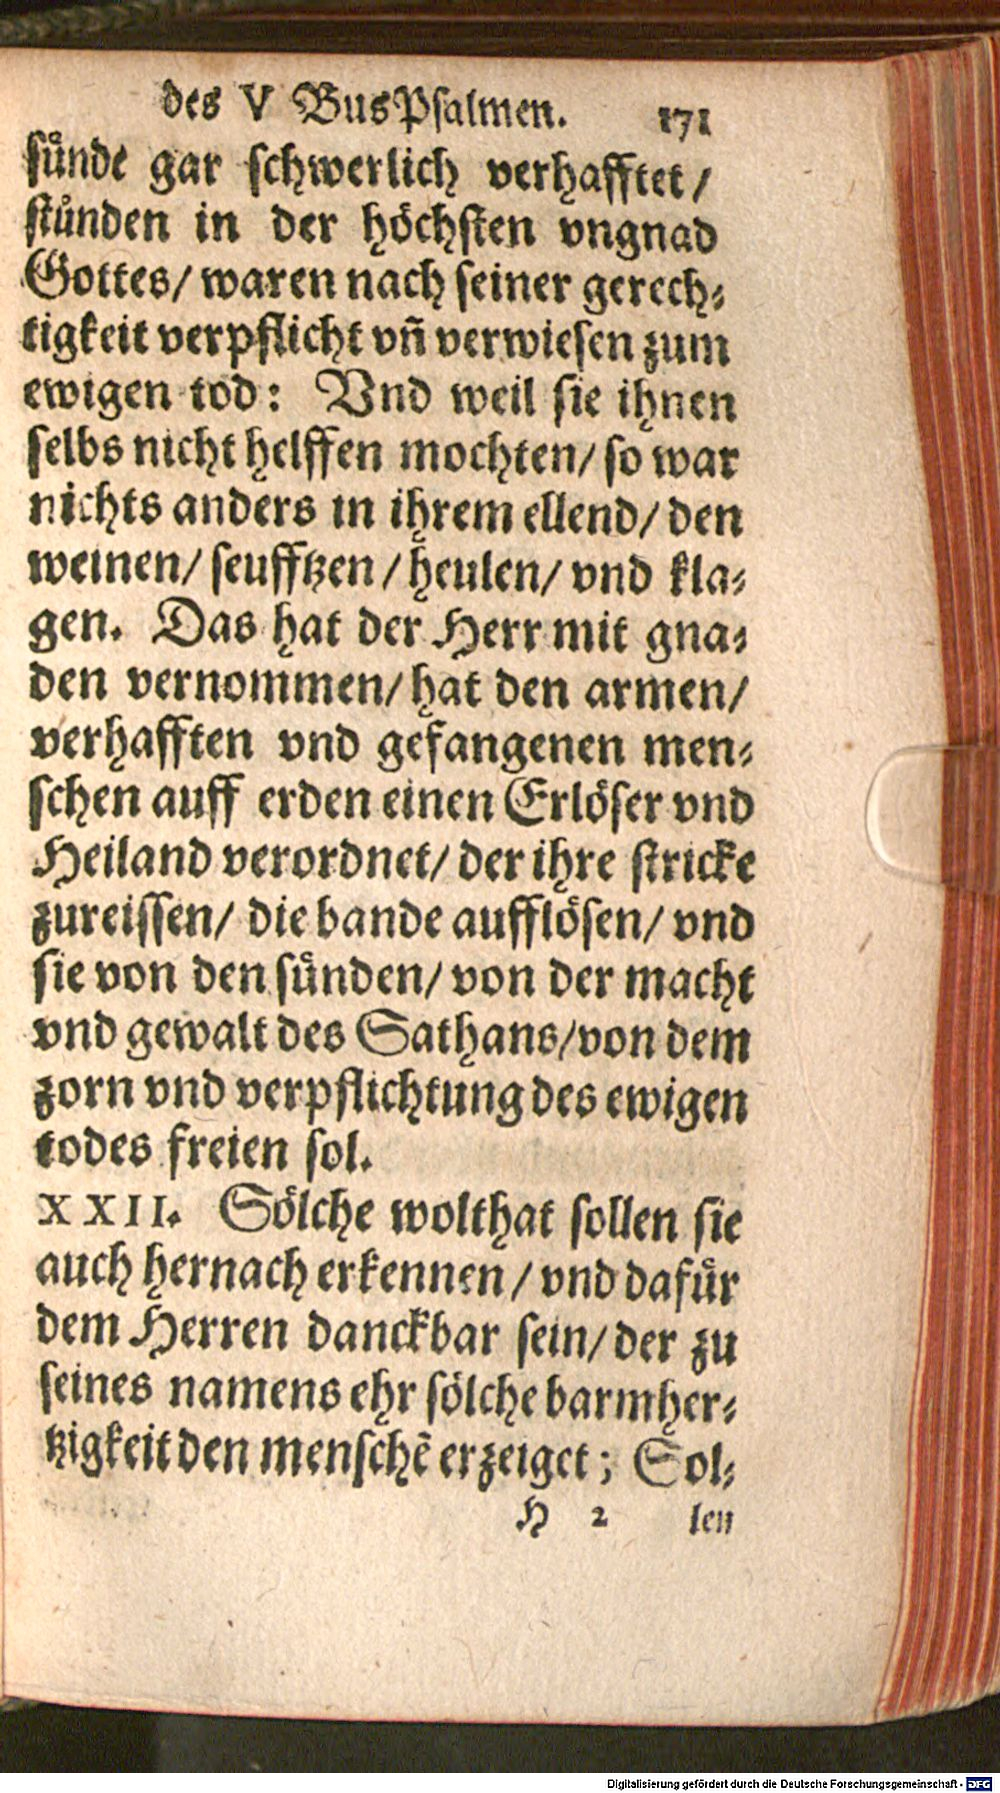 des V BusPsalmen. 171
sünde gar schwerlich verhafftet/
stünden in der höchsten vngnad
Gottes/ waren nach seiner gerech⸗
tigkeit verpflicht vn̄ verwiesen zum
ewigen tod: Vnd weil sie ihnen
selbs nicht helffen mochten/ so war
nichts anders in ihrem ellend/ den
weinen/ seufftzen/ heulen/ vnd kla⸗
gen. Das hat der Herr mit gna⸗
den vernommen/ hat den armen/
verhafften vnd gefangenen men⸗
schen auff erden einen Erlöser vnd
Heiland verordnet/ der ihre stricke
zureissen/ die bande aufflösen/ vnd
sie von den sünden/ von der macht
vnd gewalt des Sathans/ von dem
zorn vnd verpflichtung des ewigen
todes freien sol.
XXII. Sölche wolthat sollen sie
auch hernach erkennen/ vnd dafür
dem Herren danckbar sein/ der zu
seines namens ehr sölche barmher⸗
tzigkeit den menschē erzeiget; Sol⸗
H 2 len
Digitalisierung gefördert durch die Deutsche Forschungsgemeinschaft - DFG